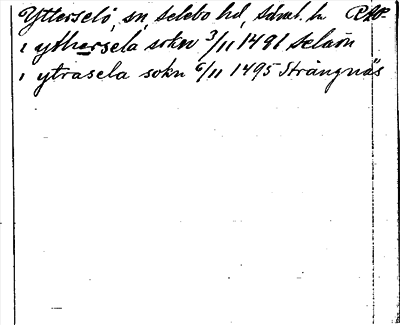 Ytterselö, sn, Selebo hd, Sdml. l. RAP.
i ythersela sokn 3/11 1491 Selaön
i ytrasela sokn 6/11 1495 Strängnäs